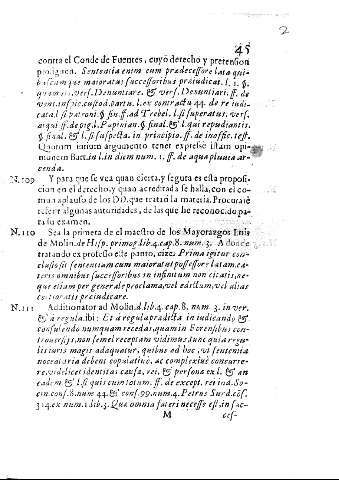 2
45
contra el Conde de Fuentes, cuyo derecho y pretension
prosiguen. Sententia enim cum prædecessore lata qui-
buscumque maioratus successoribus præiudicat. l. 1. §.
quamuis, vers. Denuntiare. & vers. Denuntiari. ff. de
vent. inspic. custod. partu. l. ex contractu 44. de re iudi-
cata. l. si patroni. §. fin. ff. ad Trebel. l. si superatus. vers.
at qui ff. de pig. l. Papinian. §. final. & l. qui repudiantis.
§ final. & l. si suspecta. in principio. ff. de inoffic. test.
Quorum iurium argumento tenet expressè istam opi-
nionem Bart. in l. in diem num. 1. ff. de aqua pluuia ar-
cenda.
N.109 Y para que se vea quan cierta, y segura es esta proposi-
cion en el derecho, y quan acreditada se halla, con el co-
mun aplauso de los DD. que tratã la materia. Procurarè
referir algunas autoridades, de las que he reconocido pa-
ra su examen.
N.110 Sea la primera de el maestro de los Mayorazgos Luis
de Molin. de Hisp. primog. lib. 4. cap. 8. num. 3. A donde
tratando ex professo este punto, dize: Prima igitur con-
clusio sit sententiam cum maioratus possessore latam, cæ-
teris omnibus successoribus in infinitum non citatis, ne-
que etiam per generale proclama, vel edictum, vel alias
contra eos præiudicare.
N.111 Additionator ad Molin. d. lib. 4. cap. 8. num. 3. in ver.
& à regula. ibi: Et à regula prædicta in iudicando &
consulendo numquam recedas, quam in Forensibus con-
trouersijs, non semel receptam vidimus, tunc quia regu-
lis iuris magis adæquatur, quibus ad hoc, vt sententia
noceat aria debent copulatiuè, ac complexiuè concurre-
re, videlicet identitas causæ, rei, & persona ex l. & an
eadem. & l. si quis cum totum. ff. de except. rei iud. So-
cin. cons. 8. num 44. & cons. 99. num. 4. Petrus Surd. cõs.
314. ex num. 1. lib. 3. Qua omnia fateri necesse est, in suc-
M
ces-